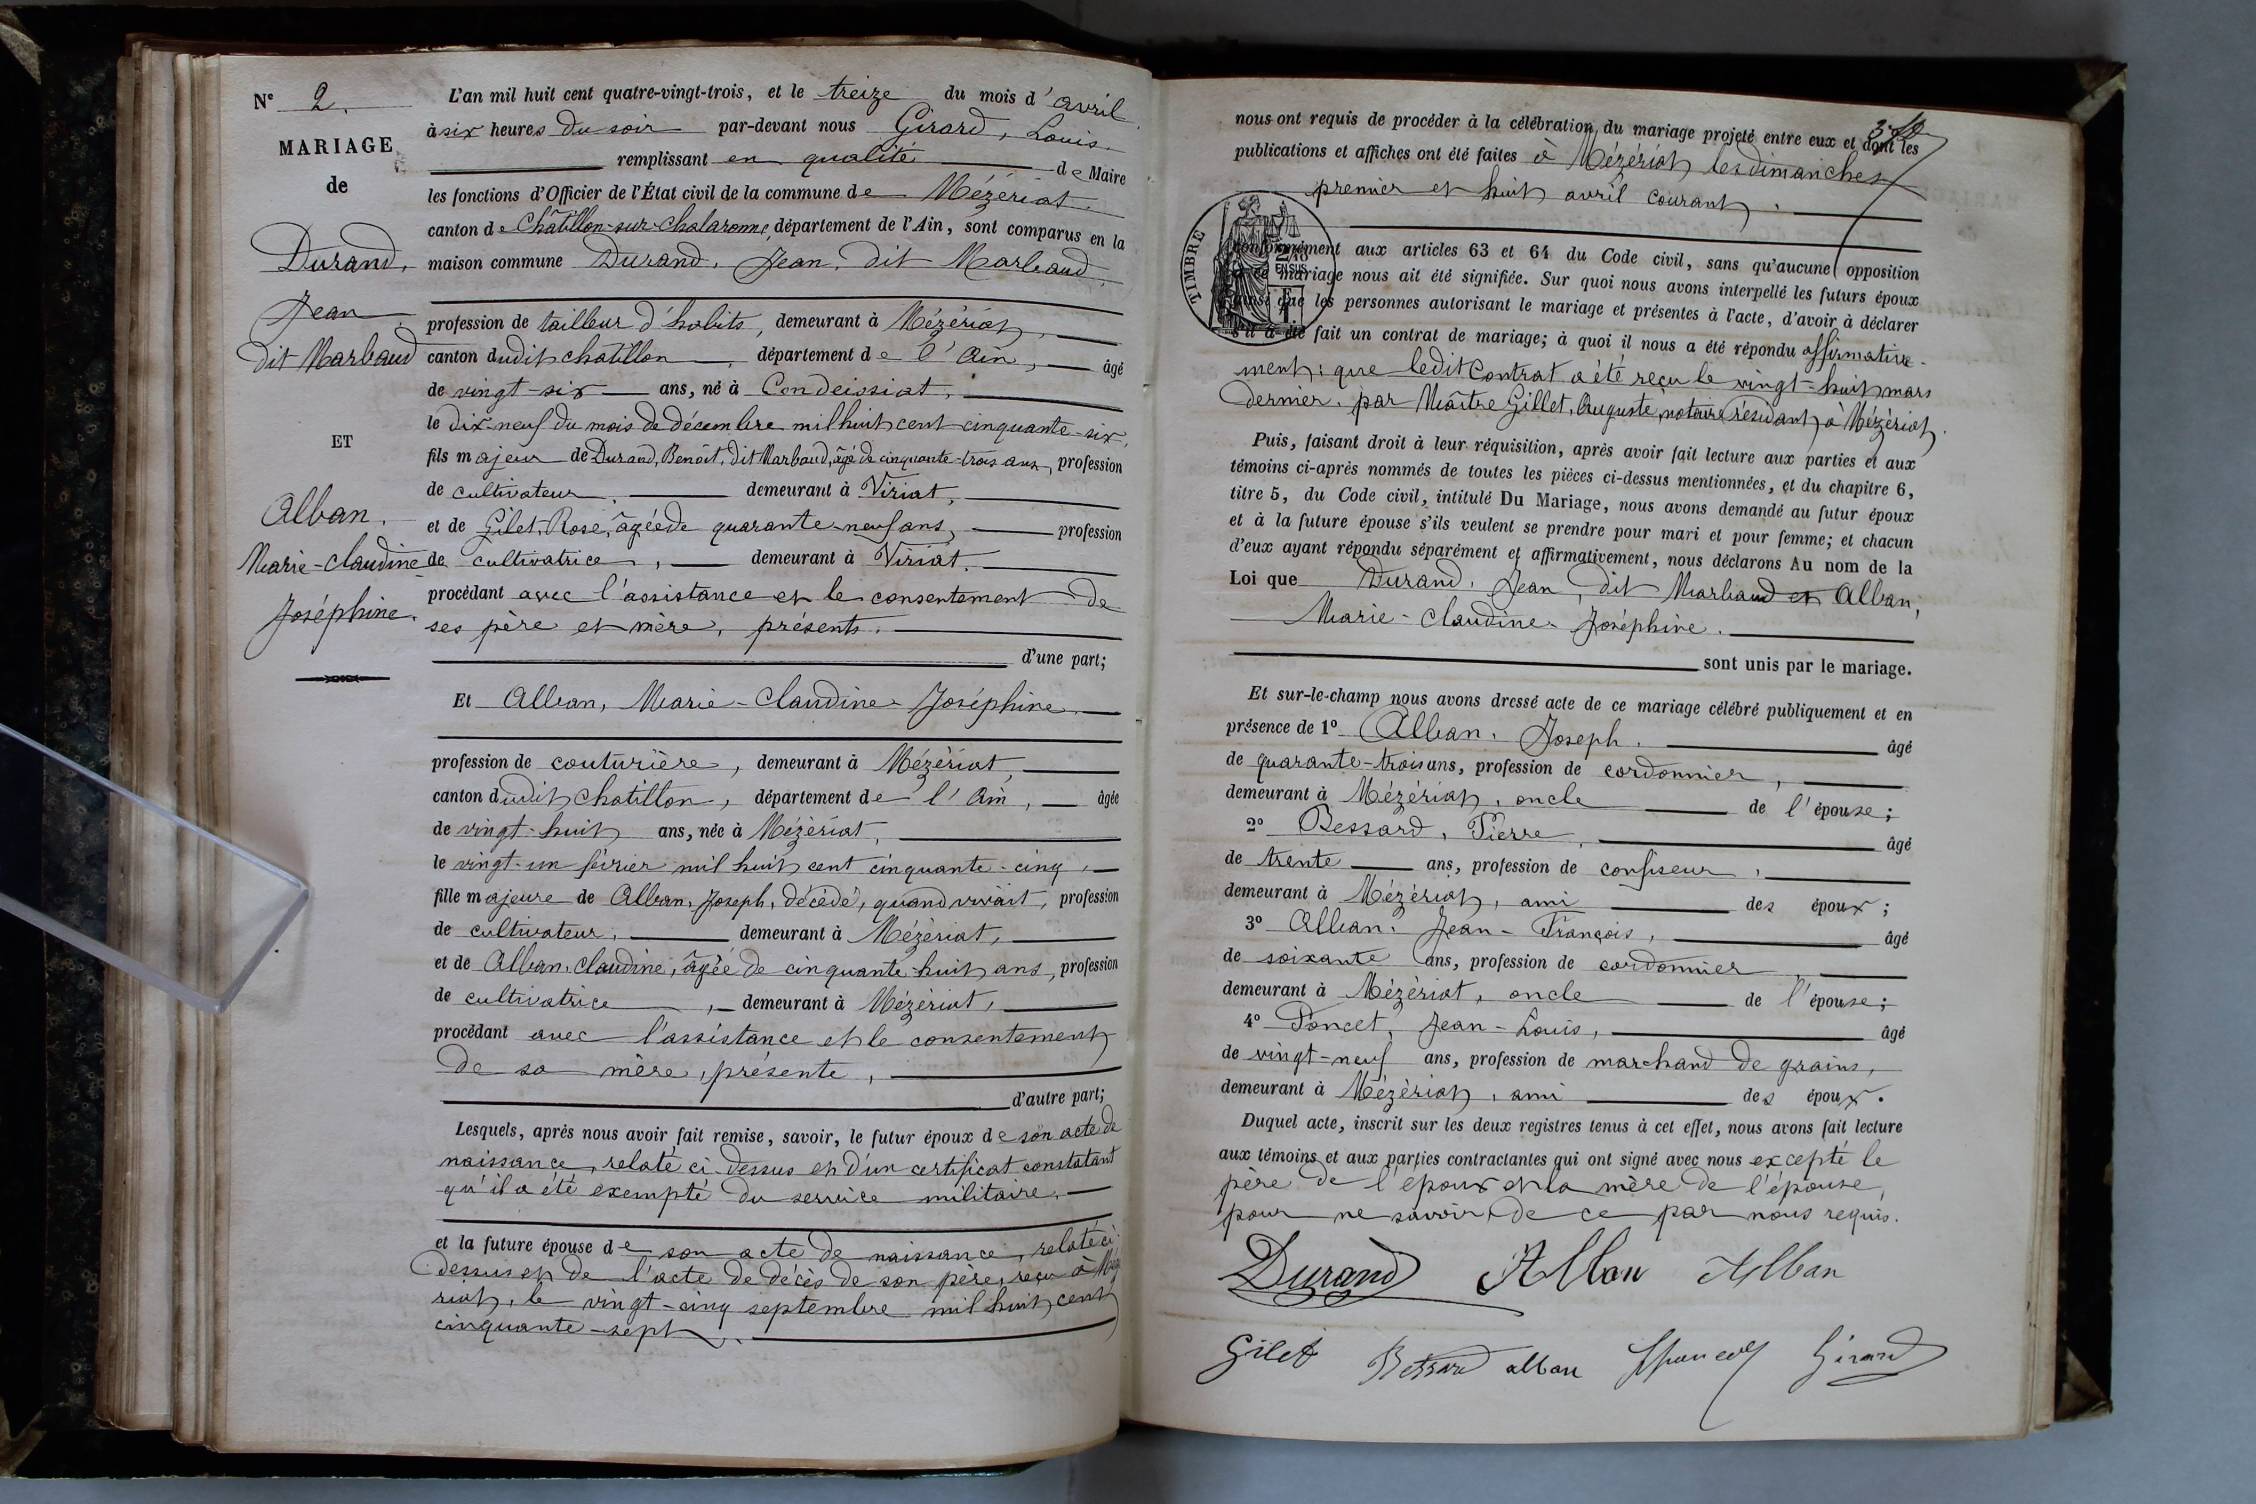 N° 2.
MARIAGE
de
Durand,
Jean
dit Marbaud
ET
Alban.
Marie-Claudine
Joséphine.
L'an mil huit cent quatre-vingt-trois, et le treize du mois d'avril
à six heures du soir par-devant nous Girard, Louis.
remplissant en qualité de Maire
les fonctions d'Officier de l'État civil de la commune de Mézériat.
canton de Châtillon-sur-Chalaronne, département de l'Ain, sont comparus en la
maison commune Durand, Jean, dit Marbaud,
profession de tailleur d'habits, demeurant à Mézériat,
canton dudit Chatillon, département de l'Ain, âgé
de vingt-six ans, né à Condeissiat,
le dix-neuf du mois de décembre mil huit cent cinquante-six,
fils majeur de Durand, Benoît, dit Marbaud, âgé de cinquante-trois ans, profession
de cultivateur, demeurant à Viriat,
et de Gilet, Rose, âgée de quarante-neuf ans, profession
de cultivatrice, demeurant à Viriat.
procédant avec l'assistance et le consentement de
ses père et mère, présents.
d'une part;
Et Alban, Marie-Claudine-Joséphine,
profession de couturière, demeurant à Mézériat,
canton dudit Chatillon, département de l'Ain, âgée
de vingt-huit ans, née à Mézériat,
le vingt-un février mil huit cent cinquante-cinq,
fille majeure de Alban, Joseph, décédé, quand vivait, profession
de cultivateur, demeurant à Mézériat,
et de Alban, Claudine, âgée de cinquante-huit ans, profession
de cultivatrice, demeurant à Mézériat,
procédant avec l'assistance et le consentement
de sa mère, présente,
d'autre part;
Lesquels, après nous avoir fait remise, savoir, le futur époux de son acte de
naissance, relaté ci-dessus et d'un certificat constatant
qu'il a été exempté du service militaire.
et la future épouse de son acte de naissance, relaté ci-
dessus et de l'acte de décès de son père, reçu à Mézé
riat, le vingt-cinq septembre mil huit cent
cinquante-sept.
nous ont requis de procéder à la célébration du mariage projeté entre eux et dont les
publications et affiches ont été faites à Mézériat les dimanches
premier et huit avril courant.
TIMBRE
conformément aux articles 63 et 64 du Code civil, sans qu'aucune opposition
à ce mariage nous ait été signifiée. Sur quoi nous avons interpellé les futurs époux
ainsi que les personnes autorisant le mariage et présentes à l'acte, d'avoir à déclarer
s'il a été fait un contrat de mariage; à quoi il nous a été répondu affirmative-
ment: que ledit contrat a été reçu le vingt-huit mars
dernier, par Maître Gillet, Auguste, notaire résidant à Mézériat.
Puis, faisant droit à leur réquisition, après avoir fait lecture aux parties et aux
témoins ci-après nommés de toutes les pièces ci-dessus mentionnées, et du chapitre 6,
titre 5, du Code civil, intitulé Du Mariage, nous avons demandé au futur époux
et à la future épouse s'ils veulent se prendre pour mari et pour femme; et chacun
d'eux ayant répondu séparément et affirmativement, nous déclarons Au nom de la
Loi que Durand, Jean, dit Marbaud et Alban,
Marie-Claudine-Joséphine.
sont unis par le mariage.
Et sur-le-champ nous avons dressé acte de ce mariage célébré publiquement et en
présence de 1° Alban, Joseph. âgé
de quarante-trois ans, profession de cordonnier,
demeurant à Mézériat, oncle de l'épouse;
2° Bessard, Pierre, âgé
de trente ans, profession de confiseur,
demeurant à Mézériat, ami des époux;
3° Alban, Jean-François, âgé
de soixante ans, profession de cordonnier,
demeurant à Mézériat, oncle de l'épouse;
4° Poncet, Jean-Louis, âgé
de vingt-neuf ans, profession de marchand de grains,
demeurant à Mézériat, ami des époux.
Duquel acte, inscrit sur les deux registres tenus à cet effet, nous avons fait lecture
aux témoins et aux parties contractantes qui ont signé avec nous excepté le
père de l'époux et la mère de l'épouse,
pour ne savoir, de ce par nous requis.
Durand Alban Alban
Gilet Bessard alban JPoncet Girard